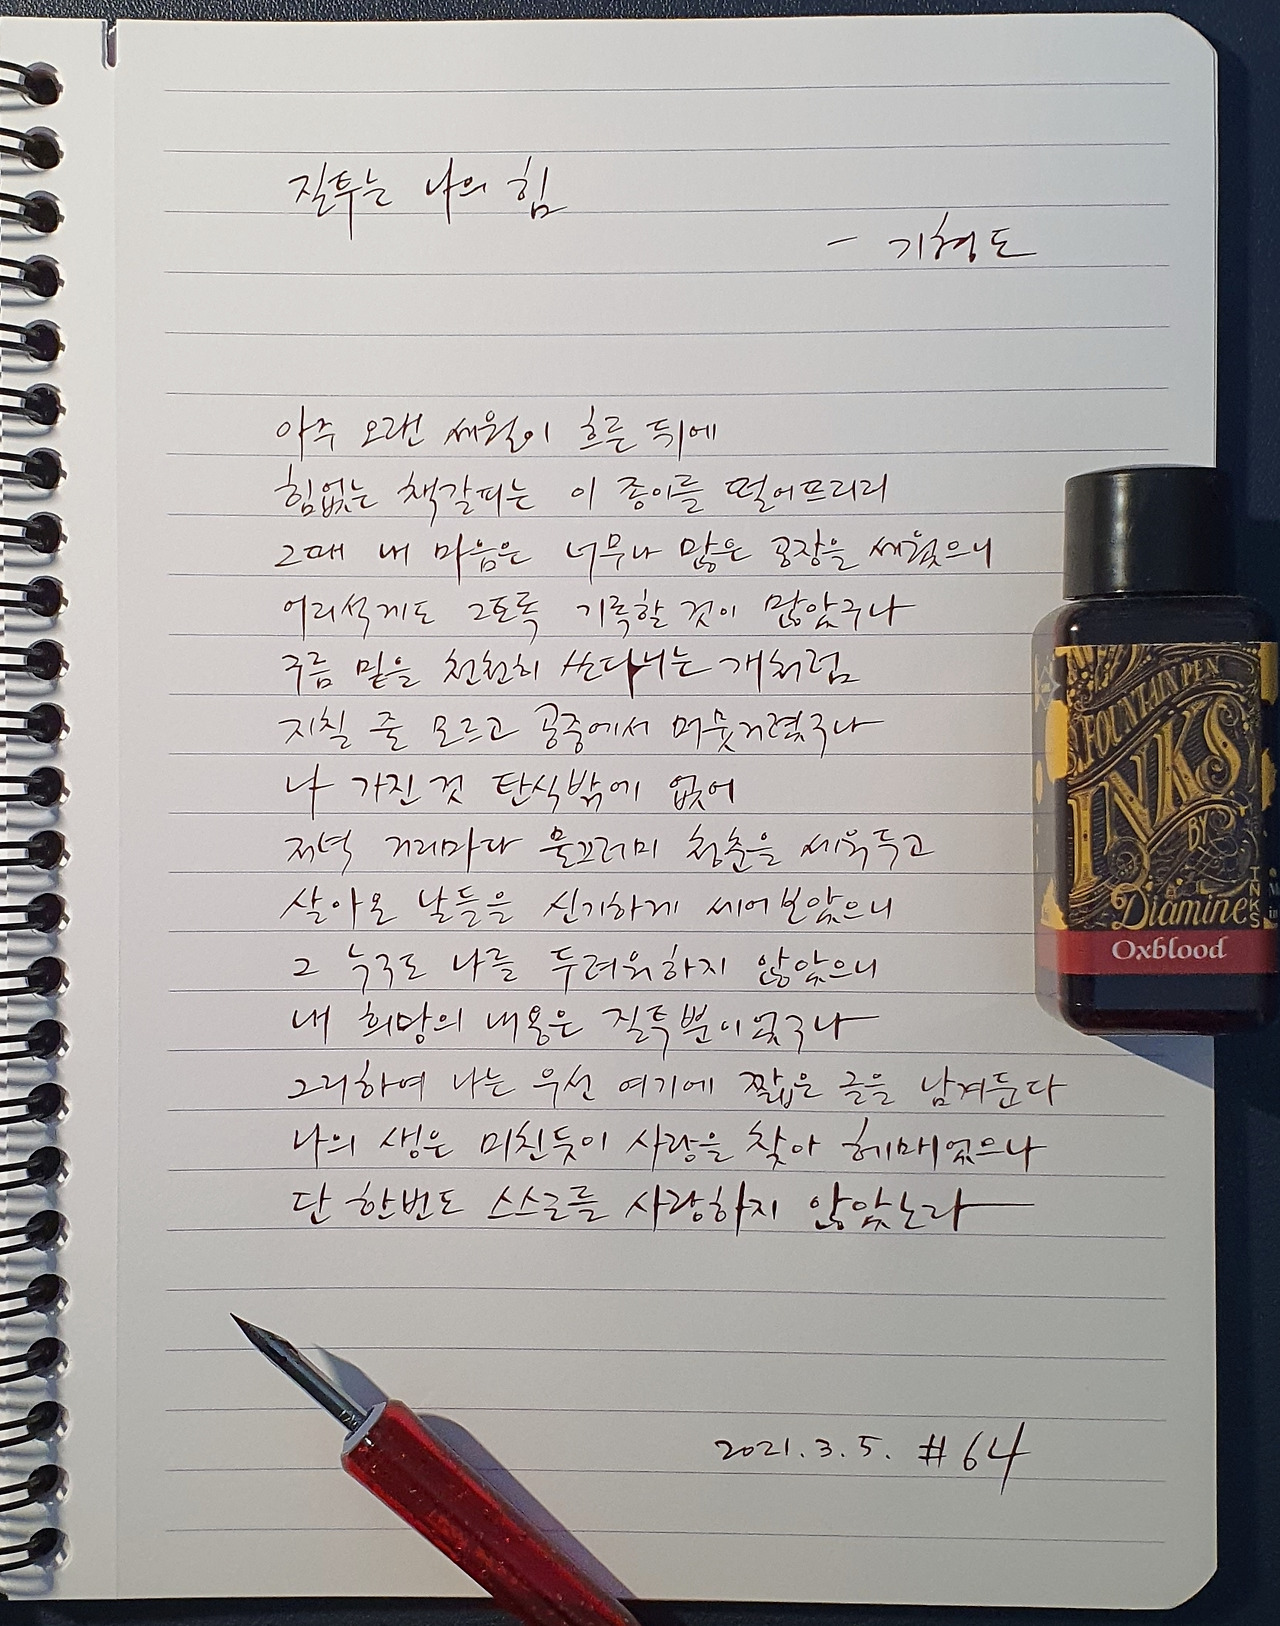 질투는 나의 힘
- 기형도
아주 오랜 세월이 흐른 뒤에
힘없는 책갈피는 이 종이를 떨어뜨리리
그때 내 마음은 너무나 많은 공장을 세웠으니
어리석게도 그토록 기록할 것이 많았구나
구름 밑을 천천히 쏘다니는 개처럼
지칠 줄 모르고 공중에서 머뭇거렸구나
나 가진 것 탄식밖에 없어
저녁 거리마다 물끄러미 청춘을 세워두고
살아온 날들을 신기하게 세어보았으니
그 누구도 나를 두려워하지 않았으니
내 희망의 내용은 질투뿐이었구나
그리하여 나는 우선 여기에 짧은 글을 남겨둔다
나의 생은 미친듯이 사랑을 찾아 헤매었으나
단 한번도 스스로를 사랑하지 않았노라
2021.3.5. #64
FOUNTAIN PEN
INKS
BY
Diamine
INKS
Oxblood